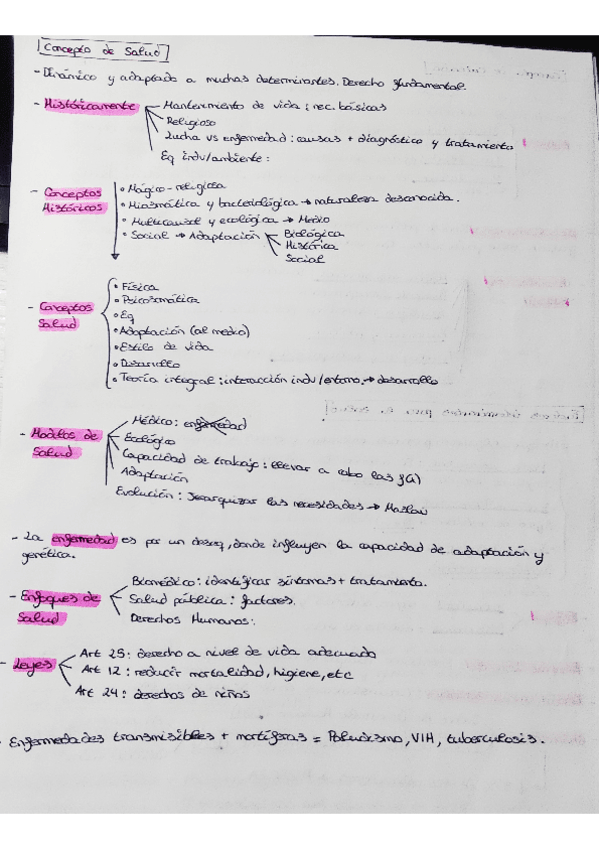 Concepto de Salud
- Dinámico y adaptado a muchas determinantes. Derecho fundamental.
- Históricamente
Mantenimiento de vida: nec. básicas
Religioso
Lucha vs enfermedad: causas + diagnóstico y tratamiento
Eq indv/ambiente:
- Conceptos Históricos
• Mágico-religiosa
• Miasmática y bacteriológica → naturaleza desconocida.
• Multicausal y ecológica → Medio
• Social → Adaptación
Biológica
Histórica
Social
- Conceptos Salud
• Física
• Psicosomática
• Eq
• Adaptación (al medio)
• Estilo de vida
• Desarrollo
• Teoría integral: interacción indv/entorno → desarrollo
- Modelos de Salud
Médico: enfermedad
Ecológico
Capacidad de trabajo: llevar a cabo las
Adaptación
Evolución: Jerarquizar las necesidades → Maslow
- La enfermedad es por un deseq, donde influyen la capacidad de adaptación y
genética.
- Enfoques de Salud
Biomédico: identificar síntomas + tratamiento.
Salud pública: factores.
Derechos Humanos:
- Leyes
Art 25: derecho a nivel de vida adecuado
Art 12: reducir mortalidad, higiene, etc
Art 24: derechos de niños
- Enfermedades transmisibles + mortíferas = Paludismo, VIH, tuberculosis.